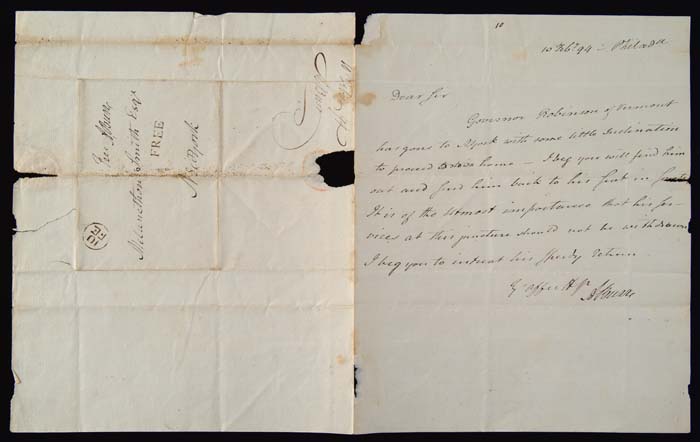 Free A Burr
Melancthon Smith Esqr
FREE
N. York
10
10 Feby 94 - Philada
Dear Sir
Governor Robinson of Vermont
has gone to N York with some little Inclination
to proceed home - I beg you will find him
out and send him back to his Seat in
It is of the utmost importance that his Ser-
vices at this juncture should not be withdrawn
I beg you to intreat his Speedy return
Yr affee H St
A Burr